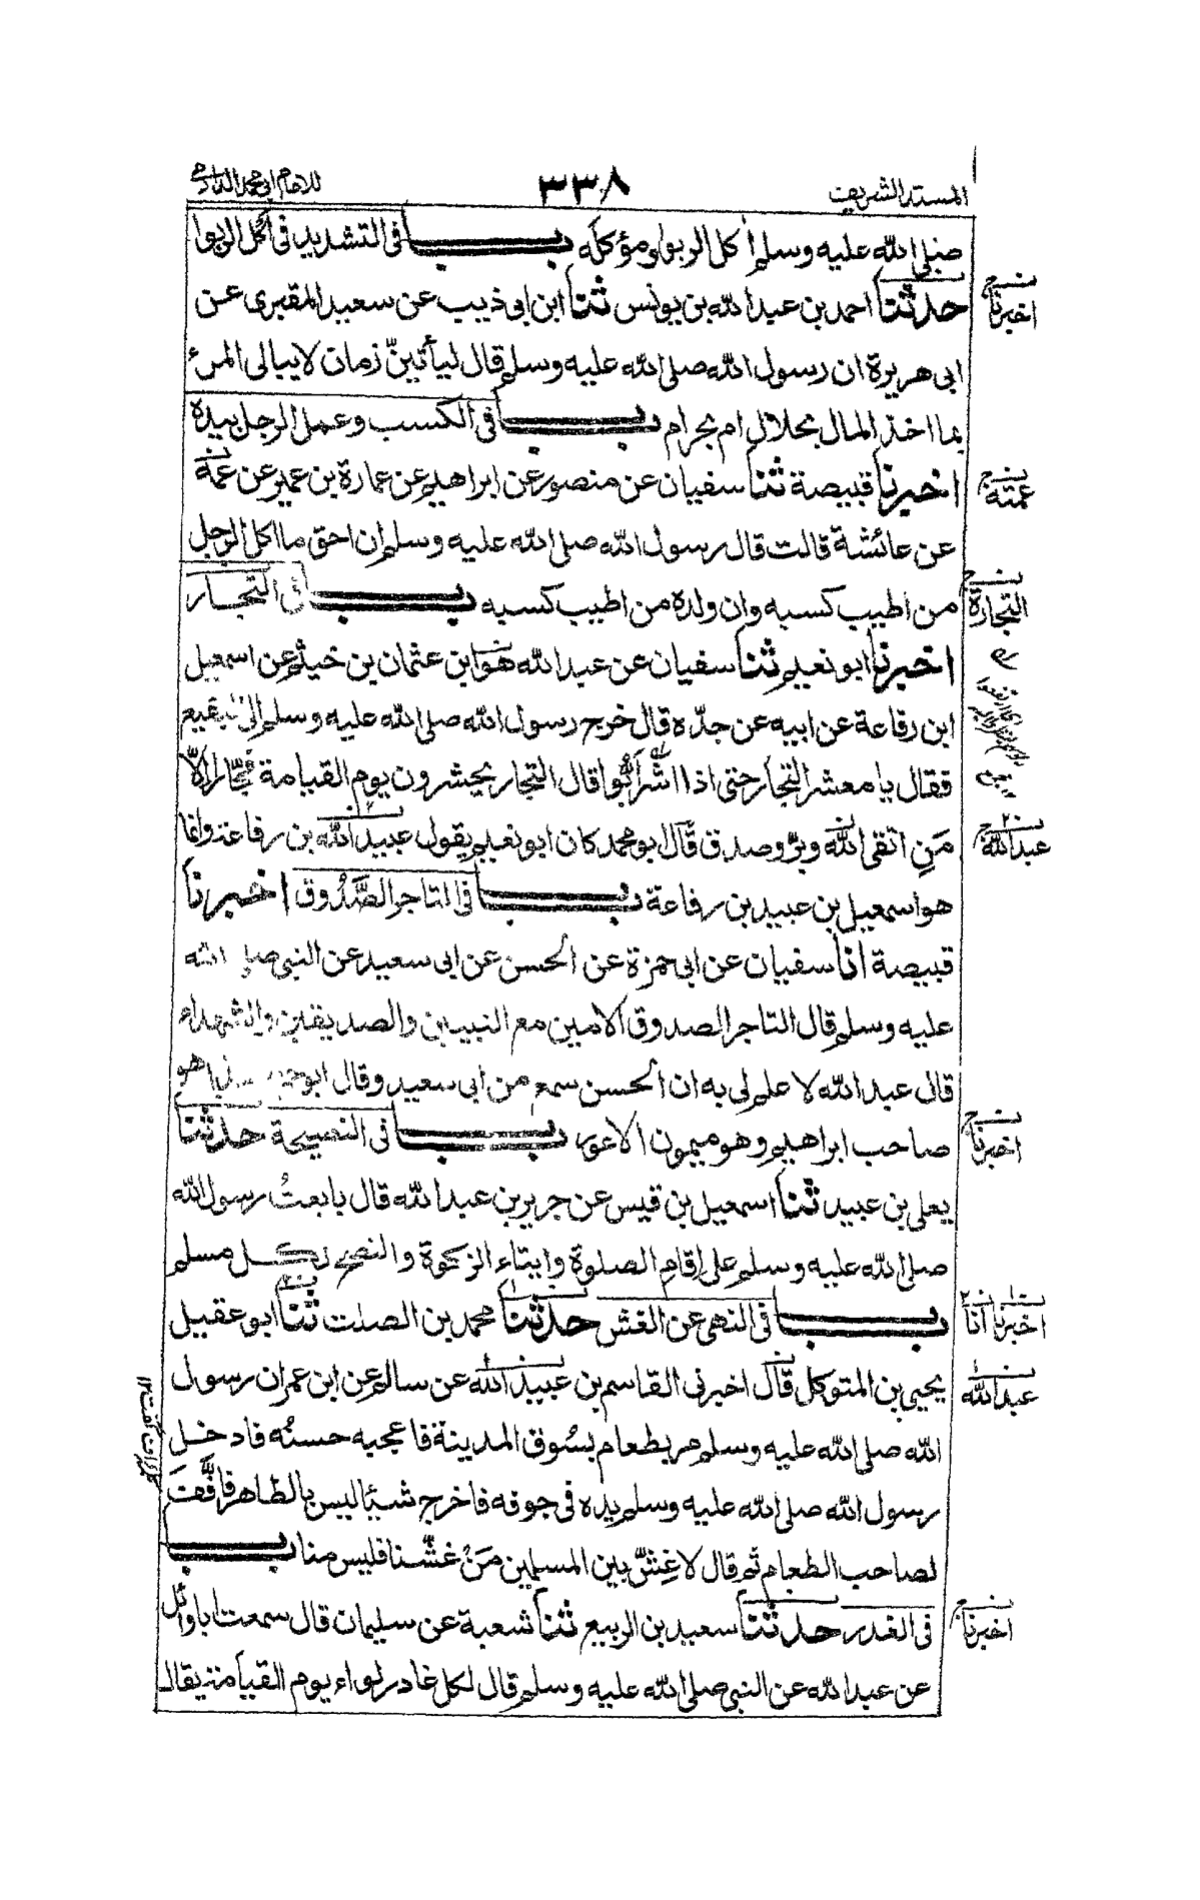 المسند الشريف ٣٣٨ للامام ابي محمد الدارمي
صلى الله عليه وسلم أكل الربوا ومؤكله باب في التشديد في أكل الربوا
حدثنا احمد بن عبد الله بن يونس ثنا ابن ابي ذيب عن سعيد المقبرى عن
اخبرنا
ابى هريرة ان رسول الله صلى الله عليه وسلم قال ليأتينّ زمان لا يبالى المرء
بما اخذ المال بحلال ام بحرام باب في الكسب وعمل الرجل بيده
اخبرنا قبيصة ثنا سفيان عن منصور عن ابراهيم عن عمارة بن عمير عن عمة
عمته
عن عائشة قالت قال رسول الله صلى الله عليه وسلم ان احق ما اكل الرجل
من اطيب كسبه وان ولده من اطيب كسبه باب في التجار
التجارة
اخبرنا ابو نعيم ثنا سفيان عن عبد الله هو ابن عثمان بن خيثم عن اسمعيل
ابن رفاعة عن ابيه عن جدّه قال خرج رسول الله صلى الله عليه وسلم الى البقيع
فقال يا معشر التجار حتى اذا اشرأبّوا قال التجار يحشرون يوم القيامة فجّارا الّا
مَنِ اتقى الله وبرّ وصدق قال ابو محمد كان ابو نعيم يقول عبيد الله بن رفاعة وانما
عبد الله
هو اسمعيل بن عبيد بن رفاعة باب في التاجر الصَّدُوق اخبرنا
قبيصة انا سفيان عن ابى حمزة عن الحسن عن ابى سعيد عن النبي صلى الله
عليه وسلم قال التاجر الصدوق الامين مع النبيين والصديقين والشهداء
قال عبد الله لا علم لى به ان الحسن سمع من ابى سعيد وقال ابو حمزة هذا هو
صاحب ابراهيم وهو ميمون الاعور باب في النصيحة حدثنا
اخبرنا
يعلى بن عبيد ثنا اسمعيل بن قيس عن جرير بن عبد الله قال بايعتُ رسول الله
صلى الله عليه وسلم على اقامِ الصلوة وايتاءِ الزكوة والنصح لكل مسلم
باب في النهى عن الغش حدثنا محمد بن الصلت ثنا ابو عقيل
اخبرنا انا
يحيى بن المتوكل قال اخبرنى القاسم بن عبيد الله عن سالم عن ابن عمر ان رسول
عبد الله
الله صلى الله عليه وسلم مر بطعام بسُوق المدينة فاعجبه حسنُه فادخل
رسول الله صلى الله عليه وسلم يده فى جوفه فاخرج شيئا ليس بالظاهر فافَّفَ
لصاحب الطعام ثم قال لا غِشَّ بين المسلمين مَنْ غشّنا فليس منا باب
في الغدر حدثنا سعيد بن الربيع ثنا شعبة عن سليمان قال سمعت ابا وائل
اخبرنا
عن عبد الله عن النبي صلى الله عليه وسلم قال لكل غادر لواء يوم القيامة يقال